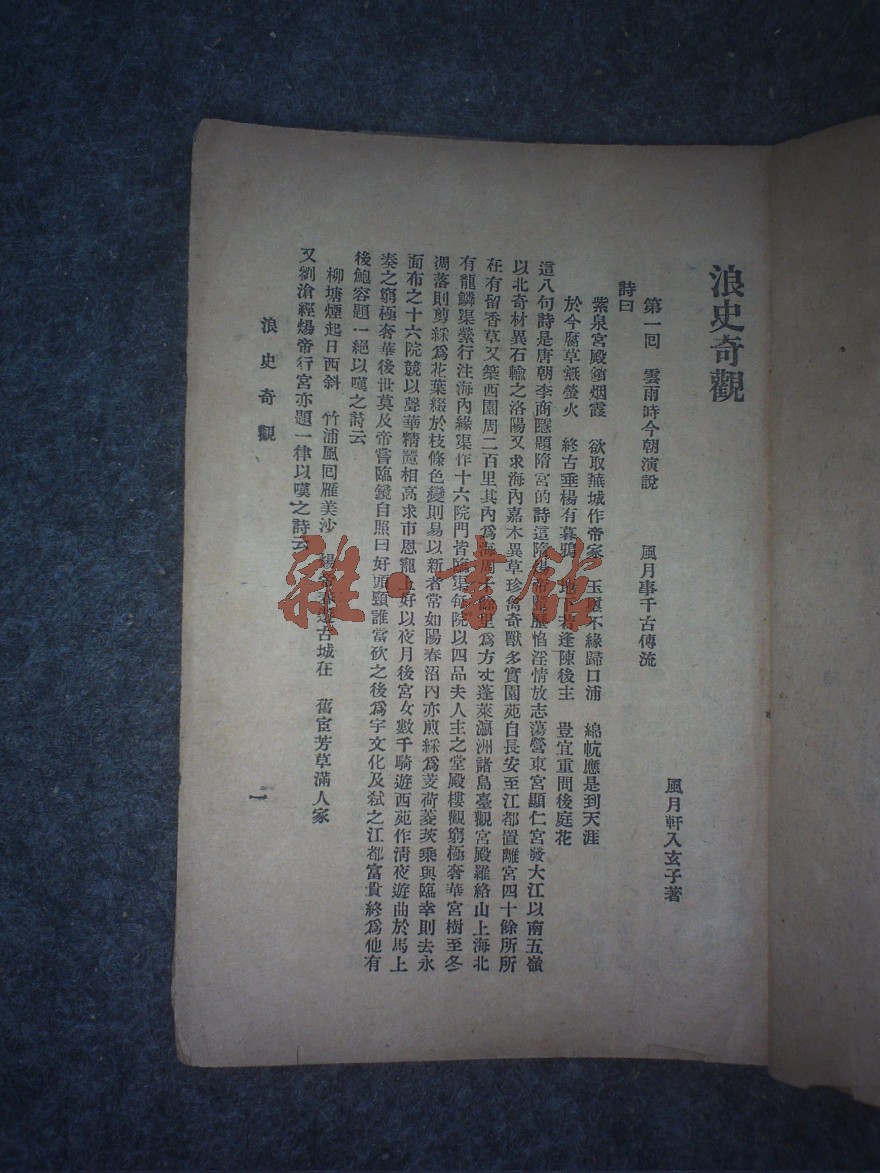 浪史奇觀
風月軒入玄子著
第一回　雲雨時今朝演說　風月事千古傳流
詩曰
紫泉宮殿鎖烟霞　欲取蕪城作帝家　玉璽不緣歸口浦　綿帆應是到天涯
於今腐草無螢火　終古垂楊有暮鴉　地下若逢陳後主　豈宜重問後庭花
這八句詩是唐朝李商隱題隋宮的詩這隋煬帝陞歷惂淫情放志蕩營東宮顯仁宮發大江以南五嶺
以北奇材異石輸之洛陽又求海內嘉木異草珍禽奇獸多實園苑自長安至江都置離宮四十餘所所
在有留香草又築西園周二百里其內為海周十餘里爲方丈蓬萊瀛洲諸島臺觀宮殿羅絡山上海北
有龍鱗渠縈行注海內緣渠作十六院門皆臨渠每院以四品夫人主之堂殿樓觀窮極奢華宮樹至冬
凋落則剪綵爲花葉綴於枝條色變則易以新者常如陽春沼內亦煎綵爲芰荷菱茨乘輿臨幸則去永
面布之十六院競以聲華精麗相高求市恩寵上好以夜月後宮女數千騎遊西苑作清夜遊曲於馬上
奏之窮極奢華後世莫及帝嘗臨鏡自照曰好頭頸誰當砍之後爲宇文化及弒之江都富貴終爲他有
後鮑容題一絕以嘆之詩云
柳塘煙起日西斜　竹浦風回雁美沙　煬帝春遊古城在　舊宮芳草滿人家
又劉滄經煬帝行宮亦題一律以嘆之詩云
浪史奇觀
一
雜·書館